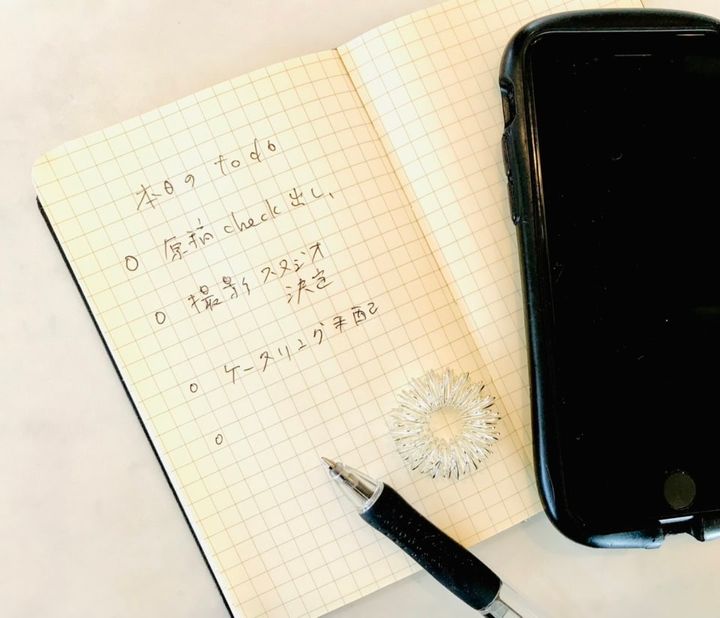 本日の todo
○ 原稿 check 出し、
○ 撮影スタジオ
決定
○ ケータリング手配
○